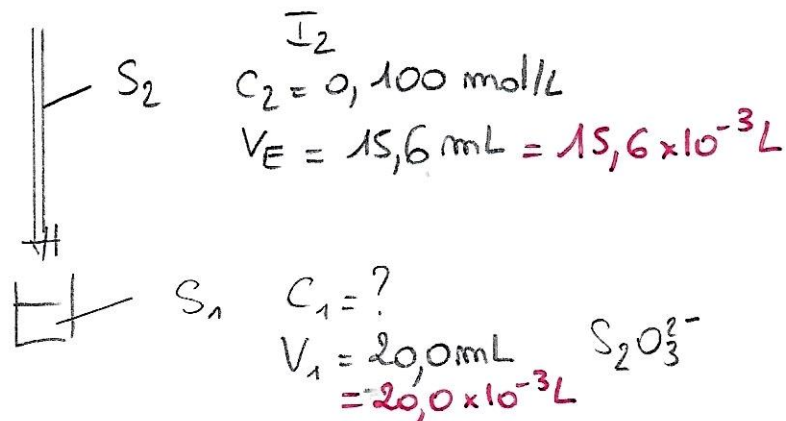 I₂
S₂ C₂ = 0,100 mol/L
V_E = 15,6 mL = 15,6 × 10⁻³ L
S₁ C₁ = ?
V₁ = 20,0 mL S₂O₃²⁻
= 20,0 × 10⁻³ L